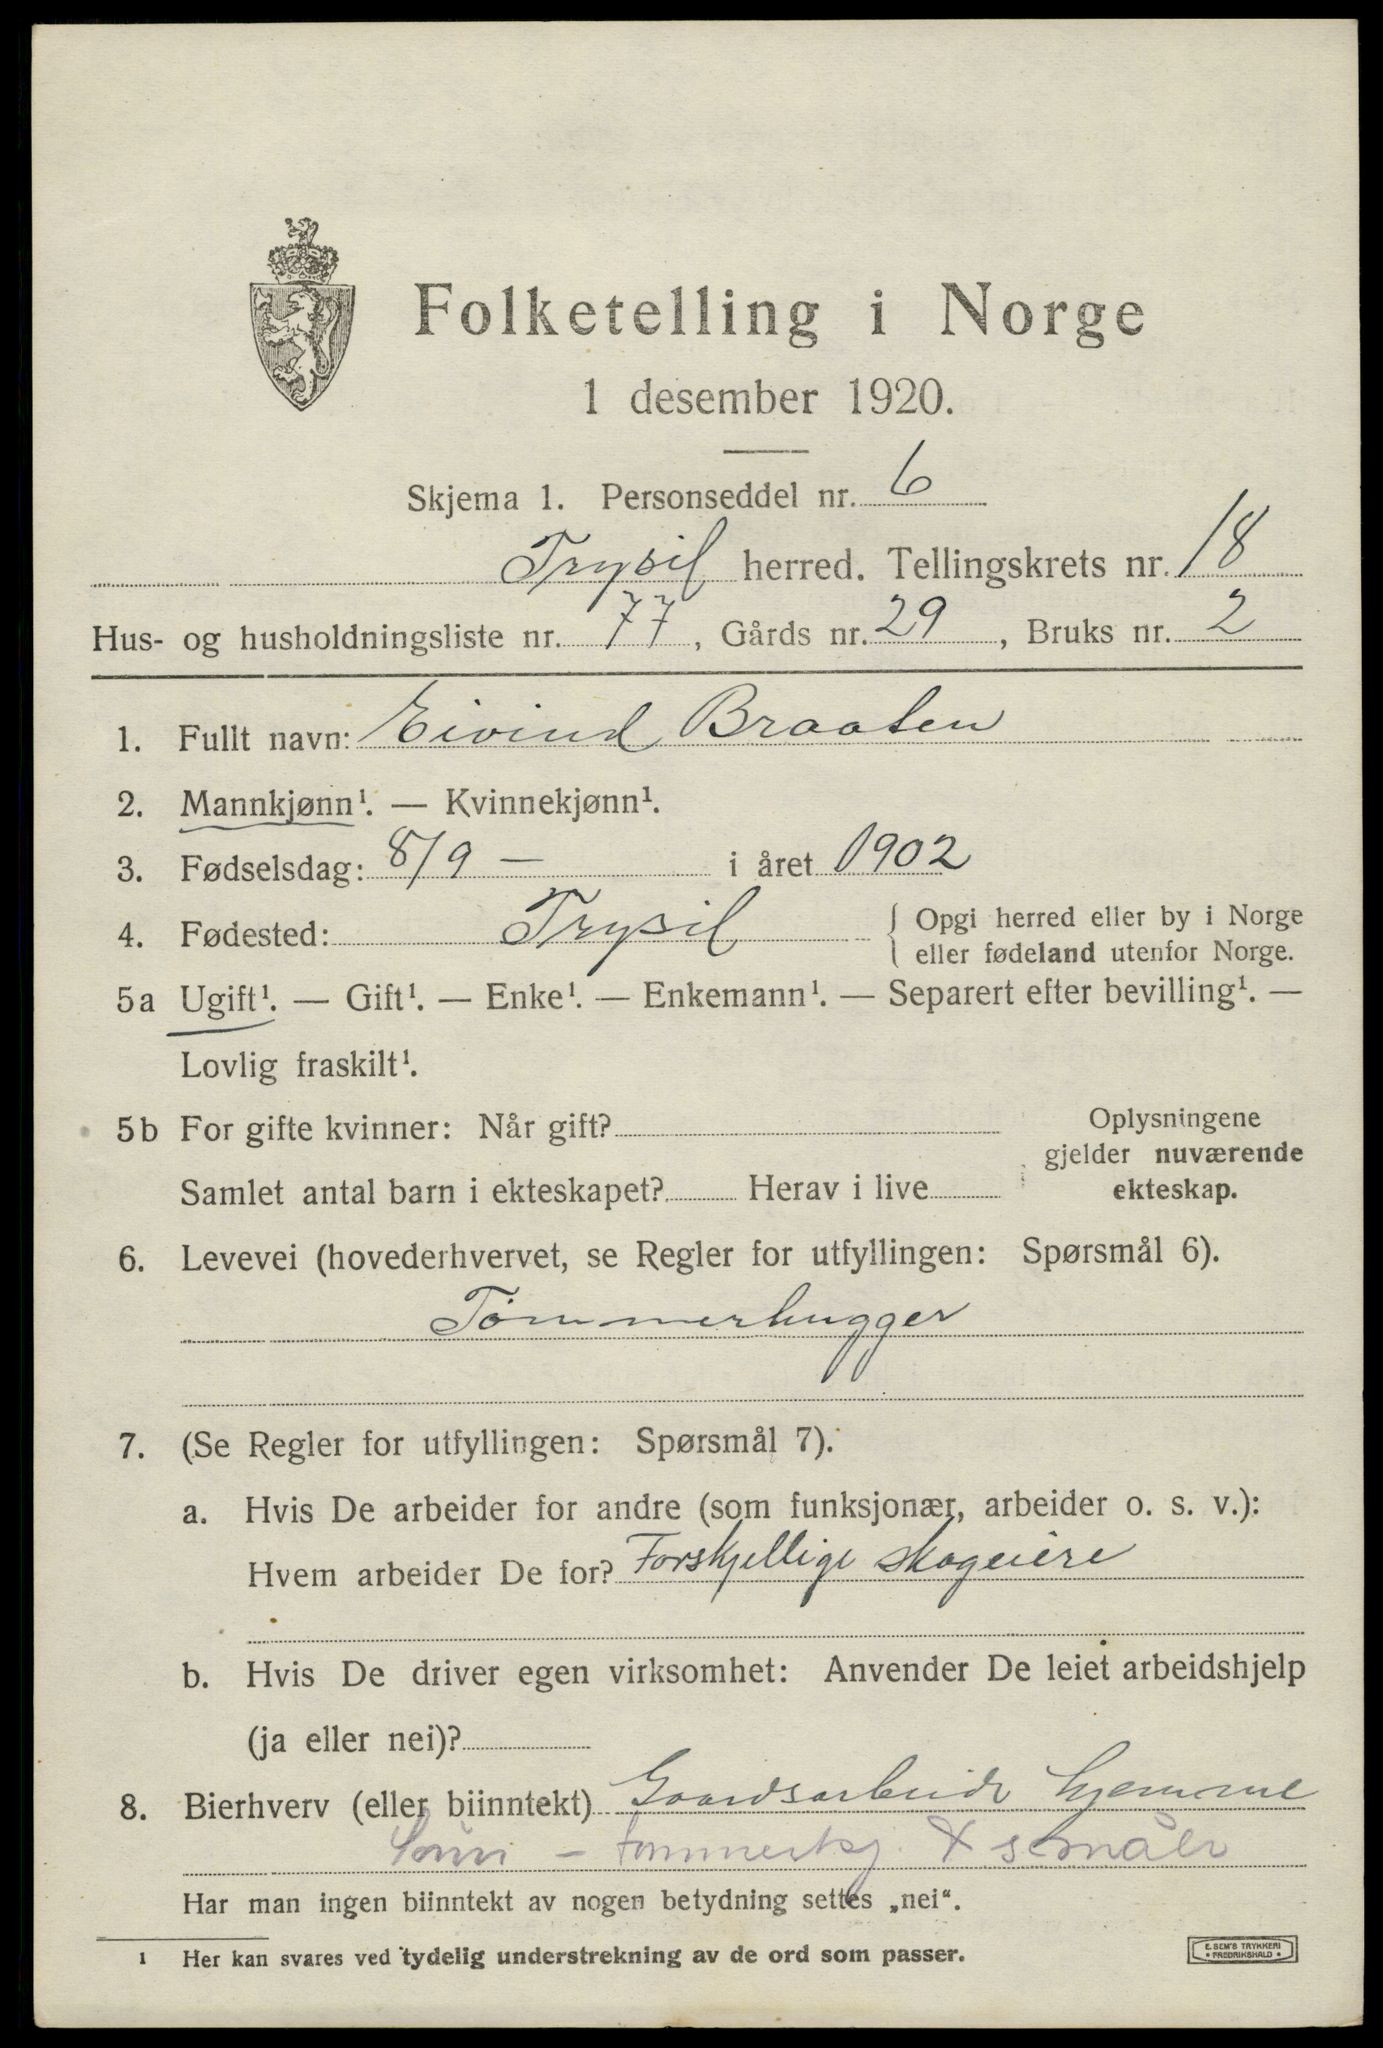 Folketelling i Norge
1 desember 1920.
Skjema 1. Personseddel nr. 6
Trysil herred. Tellingskrets nr. 18
Hus- og husholdningsliste nr. 77, Gårds nr. 29, Bruks nr. 2
1. Fullt navn: Eivind Braaten
2. Mannkjønn¹. — Kvinnekjønn¹.
3. Fødselsdag: 8/9 — i året 1902
4. Fødested: Trysil { Opgi herred eller by i Norge
eller fødeland utenfor Norge.
5a Ugift¹. — Gift¹. — Enke¹. — Enkemann¹. — Separert efter bevilling¹. —
Lovlig fraskilt¹.
5b For gifte kvinner: Når gift?
Samlet antal barn i ekteskapet? Herav i live
Oplysningene
gjelder nuværende
ekteskap.
6. Levevei (hovederhvervet, se Regler for utfyllingen: Spørsmål 6).
Tømmerhugger
7. (Se Regler for utfyllingen: Spørsmål 7).
a. Hvis De arbeider for andre (som funksjonær, arbeider o. s. v.):
Hvem arbeider De for? Forskjellige skogeiere
b. Hvis De driver egen virksomhet: Anvender De leiet arbeidshjelp
(ja eller nei)?
8. Bierhverv (eller biinntekt) Gaardsarbeide hjemme
tømmerkj.
Har man ingen biinntekt av nogen betydning settes „nei“.
¹ Her kan svares ved tydelig understrekning av de ord som passer.
E. SEM'S TRYKKERI
• FREDRIKSHALD •